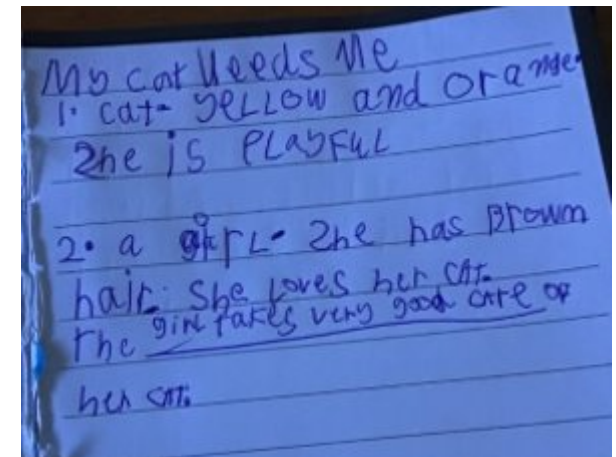 My cat Needs Me
1. cat- yeLLow and orange.
2he is PLayFuL
2. a girL. 2he has Brown
hair. She loves her cat.
The girl takes very good care of
her cat.